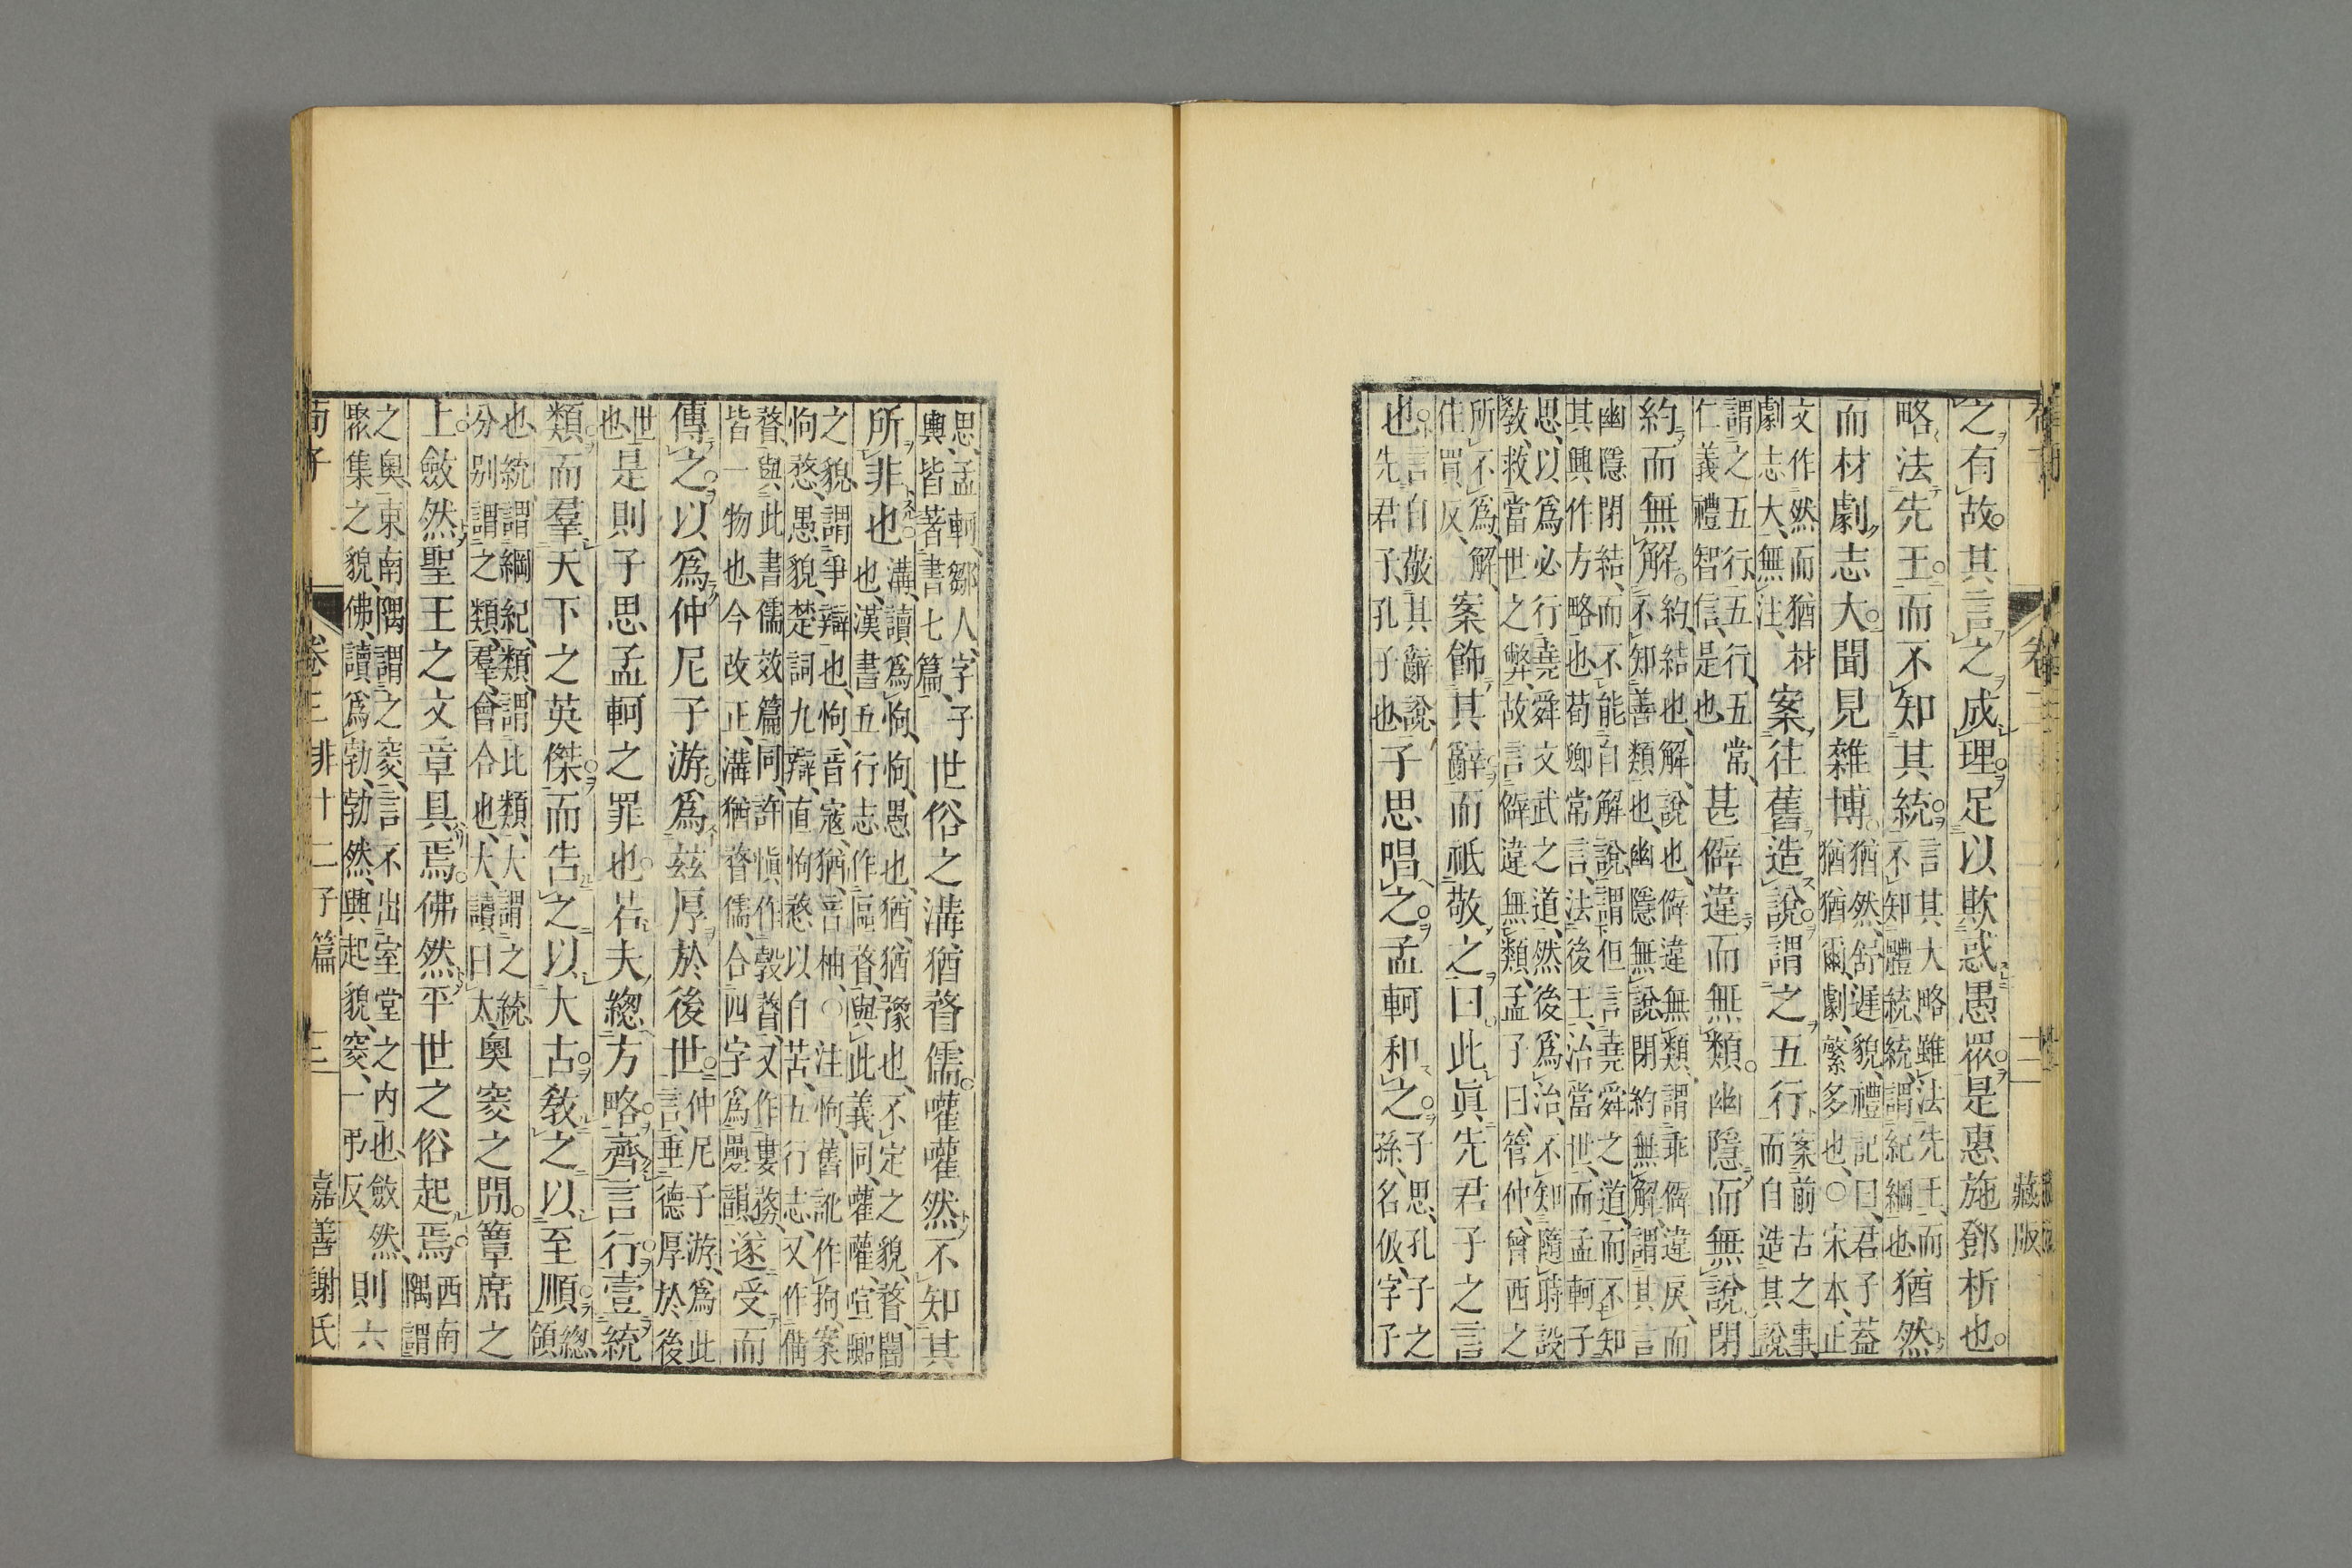 藏版
之有故其言之成理足以欺惑愚衆是惠施鄧析也
略法先王而不知其統
言其大略雖法先王而
不知體統統謂紀綱也
猶然
而材劇志大聞見雜博
猶然舒遲貌禮記曰君子葢
猶猶爾劇繁多也○宋本正
文作然而猶材
劇志大無注
案往舊造說謂之五行
案前古之事
而自造其說
謂之五行五行五常
仁義禮智信是也
甚僻違而無類幽隱而無說閉
約而無解
約結也解說也僻違無類謂乖僻違戾而
不知善類也幽隱無說閉約無解謂其言
幽隱閉結而不能自解說謂但言堯舜之道而不知
其興作方略也荀卿常言法後王治當世而孟軻子
思以爲必行堯舜文武之道然後爲治不知隨時設
敎救當世之弊故言僻違無類孟子曰管仲曾西之
所不爲解
佳買反
案飾其辭而祗敬之曰此眞先君子之言
也
言自敬其辭說
先君子孔子也
子思唱之孟軻和之
子思孔子之
孫名伋字子
思孟軻鄒人字子
輿皆著書七篇
世俗之溝猶瞀儒嚾嚾然不知其
所非也
溝讀爲怐怐愚也猶猶豫也不定之貌瞀闇
也漢書五行志作區瞀與此義同嚾嚾喧囂
之貌謂爭辯也怐音寇猶音柚○注怐舊訛作拘案
怐愗愚貌楚詞九辯直怐愗以自苦五行志又作傋
瞀與此書儒效篇同許愼作㝅瞀又作婁務
皆一物也今改正溝猶瞀儒合四字爲疊韻
遂受而
傳之以爲仲尼子游爲茲厚於後世
仲尼子游爲此
言垂德厚於後
世
也
是則子思孟軻之罪也若夫總方略齊言行壹統
類而羣天下之英傑而告之以大古敎之以至順
總
領
也統謂綱紀類謂比類大謂之統
分别謂之類羣會合也大讀曰太
奧窔之閒簟席之
上斂然聖王之文章具焉佛然平世之俗起焉
西南
隅謂
之奧東南隅謂之窔言不出室堂之内也斂然
聚集之貌佛讀爲勃勃然興起貌窔一弔反
則六
荀子 卷三 非十二子篇 三 嘉善謝氏